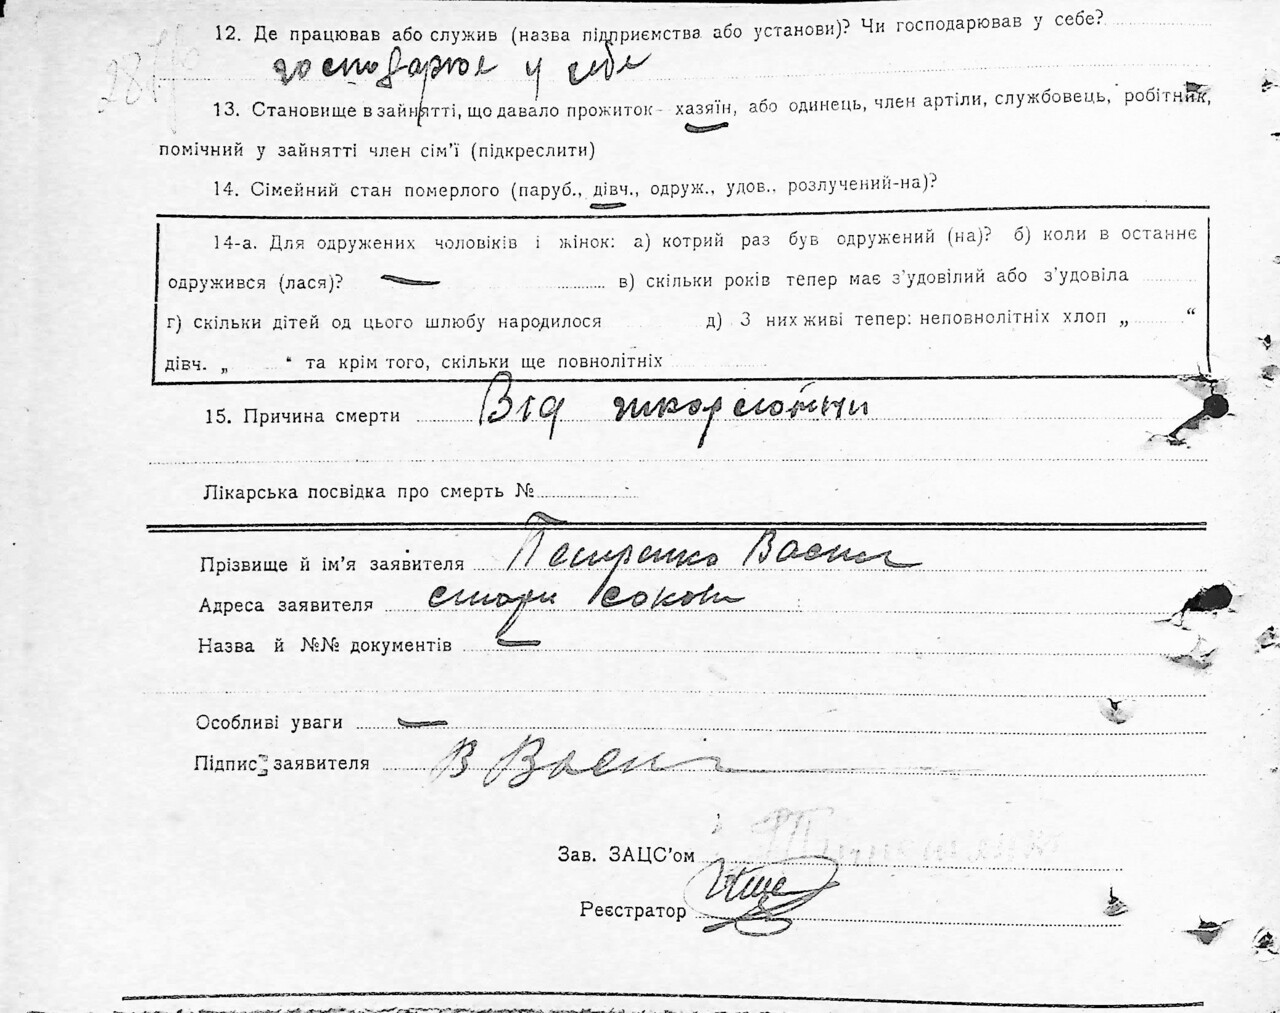 12. Де працював або служив (назва підприємства або установи)? Чи господарював у себе?
господарює у себе
13. Становище в зайнятті, що давало прожиток - хазяїн, або одинець, член артіли, службовець, робітник,
помічний у зайнятті член сім'ї (підкреслити)
14. Сімейний стан померлого (паруб., дівч., одруж., удов.. розлучений-на)?
14-а. Для одружених чоловіків і жінок: а) котрий раз був одружений (на)? б) коли в останнє
одружився (лася)? в) скільки років тепер має з'удовілий або з'удовіла
г) скільки дітей од цього шлюбу народилося д) З них живі тепер: неповнолітніх хлоп „ “
дівч. „ “ та крім того, скільки ще повнолітніх
15. Причина смерти Від
Лікарська посвідка про смерть №
Прізвище й ім'я заявителя Василь
Адреса заявителя
Назва й №№ документів
Особливі уваги
Підпис заявителя
Зав. ЗАЦС'ом
Реєстратор